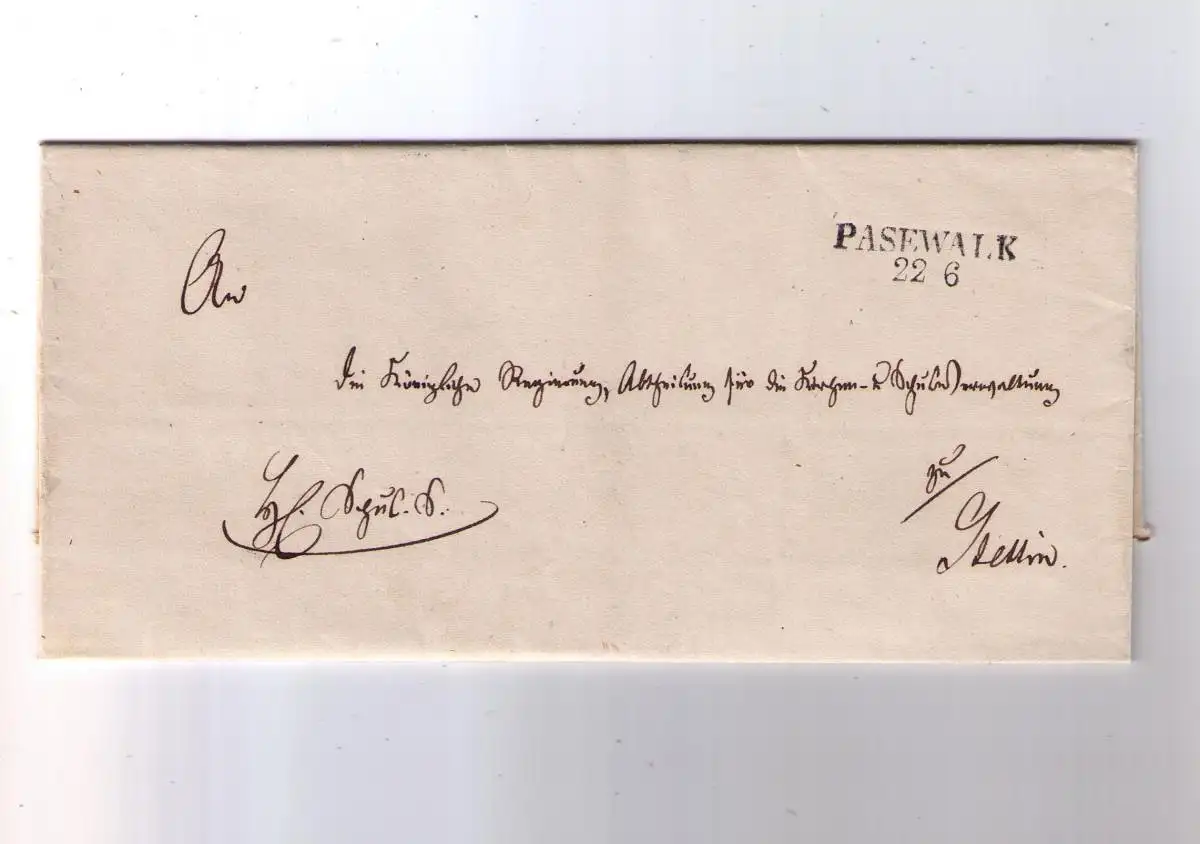 PASEWALK
22 6
An
die Königliche Regierung, Abtheilung für die Kirchen- & Schul-Verwaltung
Schul. S.
zu
Stettin.